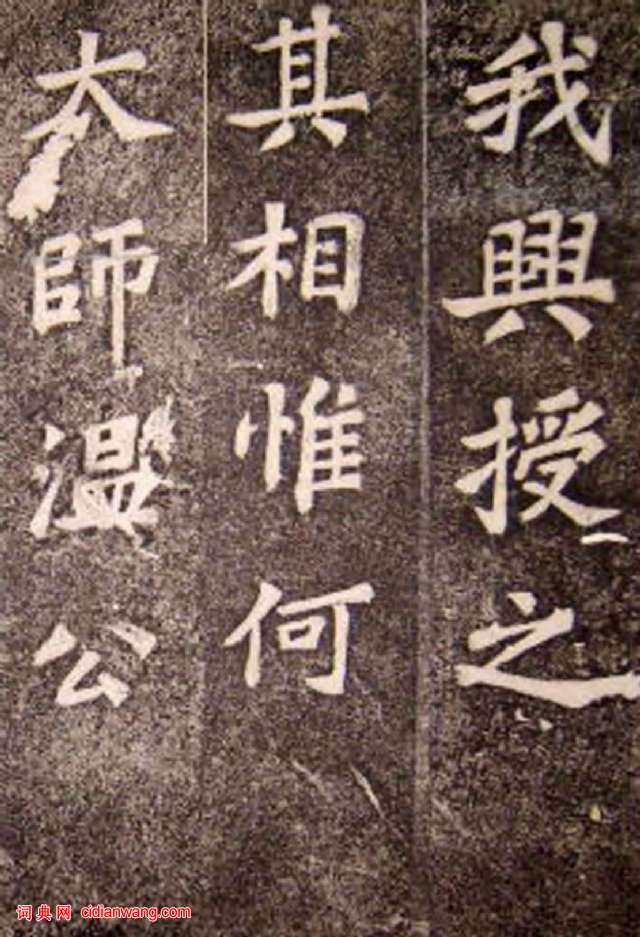 我興授之
其相惟何
太師溫公
词典网 cidianwang.com